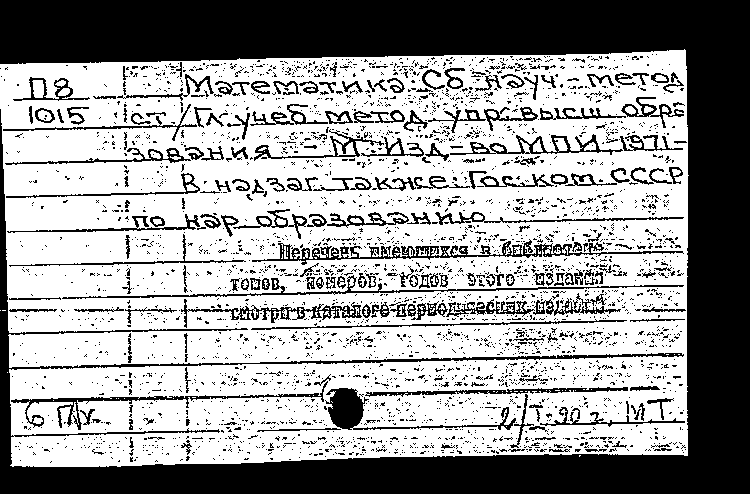 П8 Математика: Сб. науч.-метод.
1015 ст./Гл. учеб.-метод. упр. высш. обра-
зования. - М.: Изд-во МПИ, 1971-
В надзаг. также: Гос. ком. СССР
по нар. образованию.
Перечень имеющихся в библиотеке
томов, номеров, годов этого издания
смотри в каталоге периодических изданий
6 П/к 2/I-90 г. М.Т.